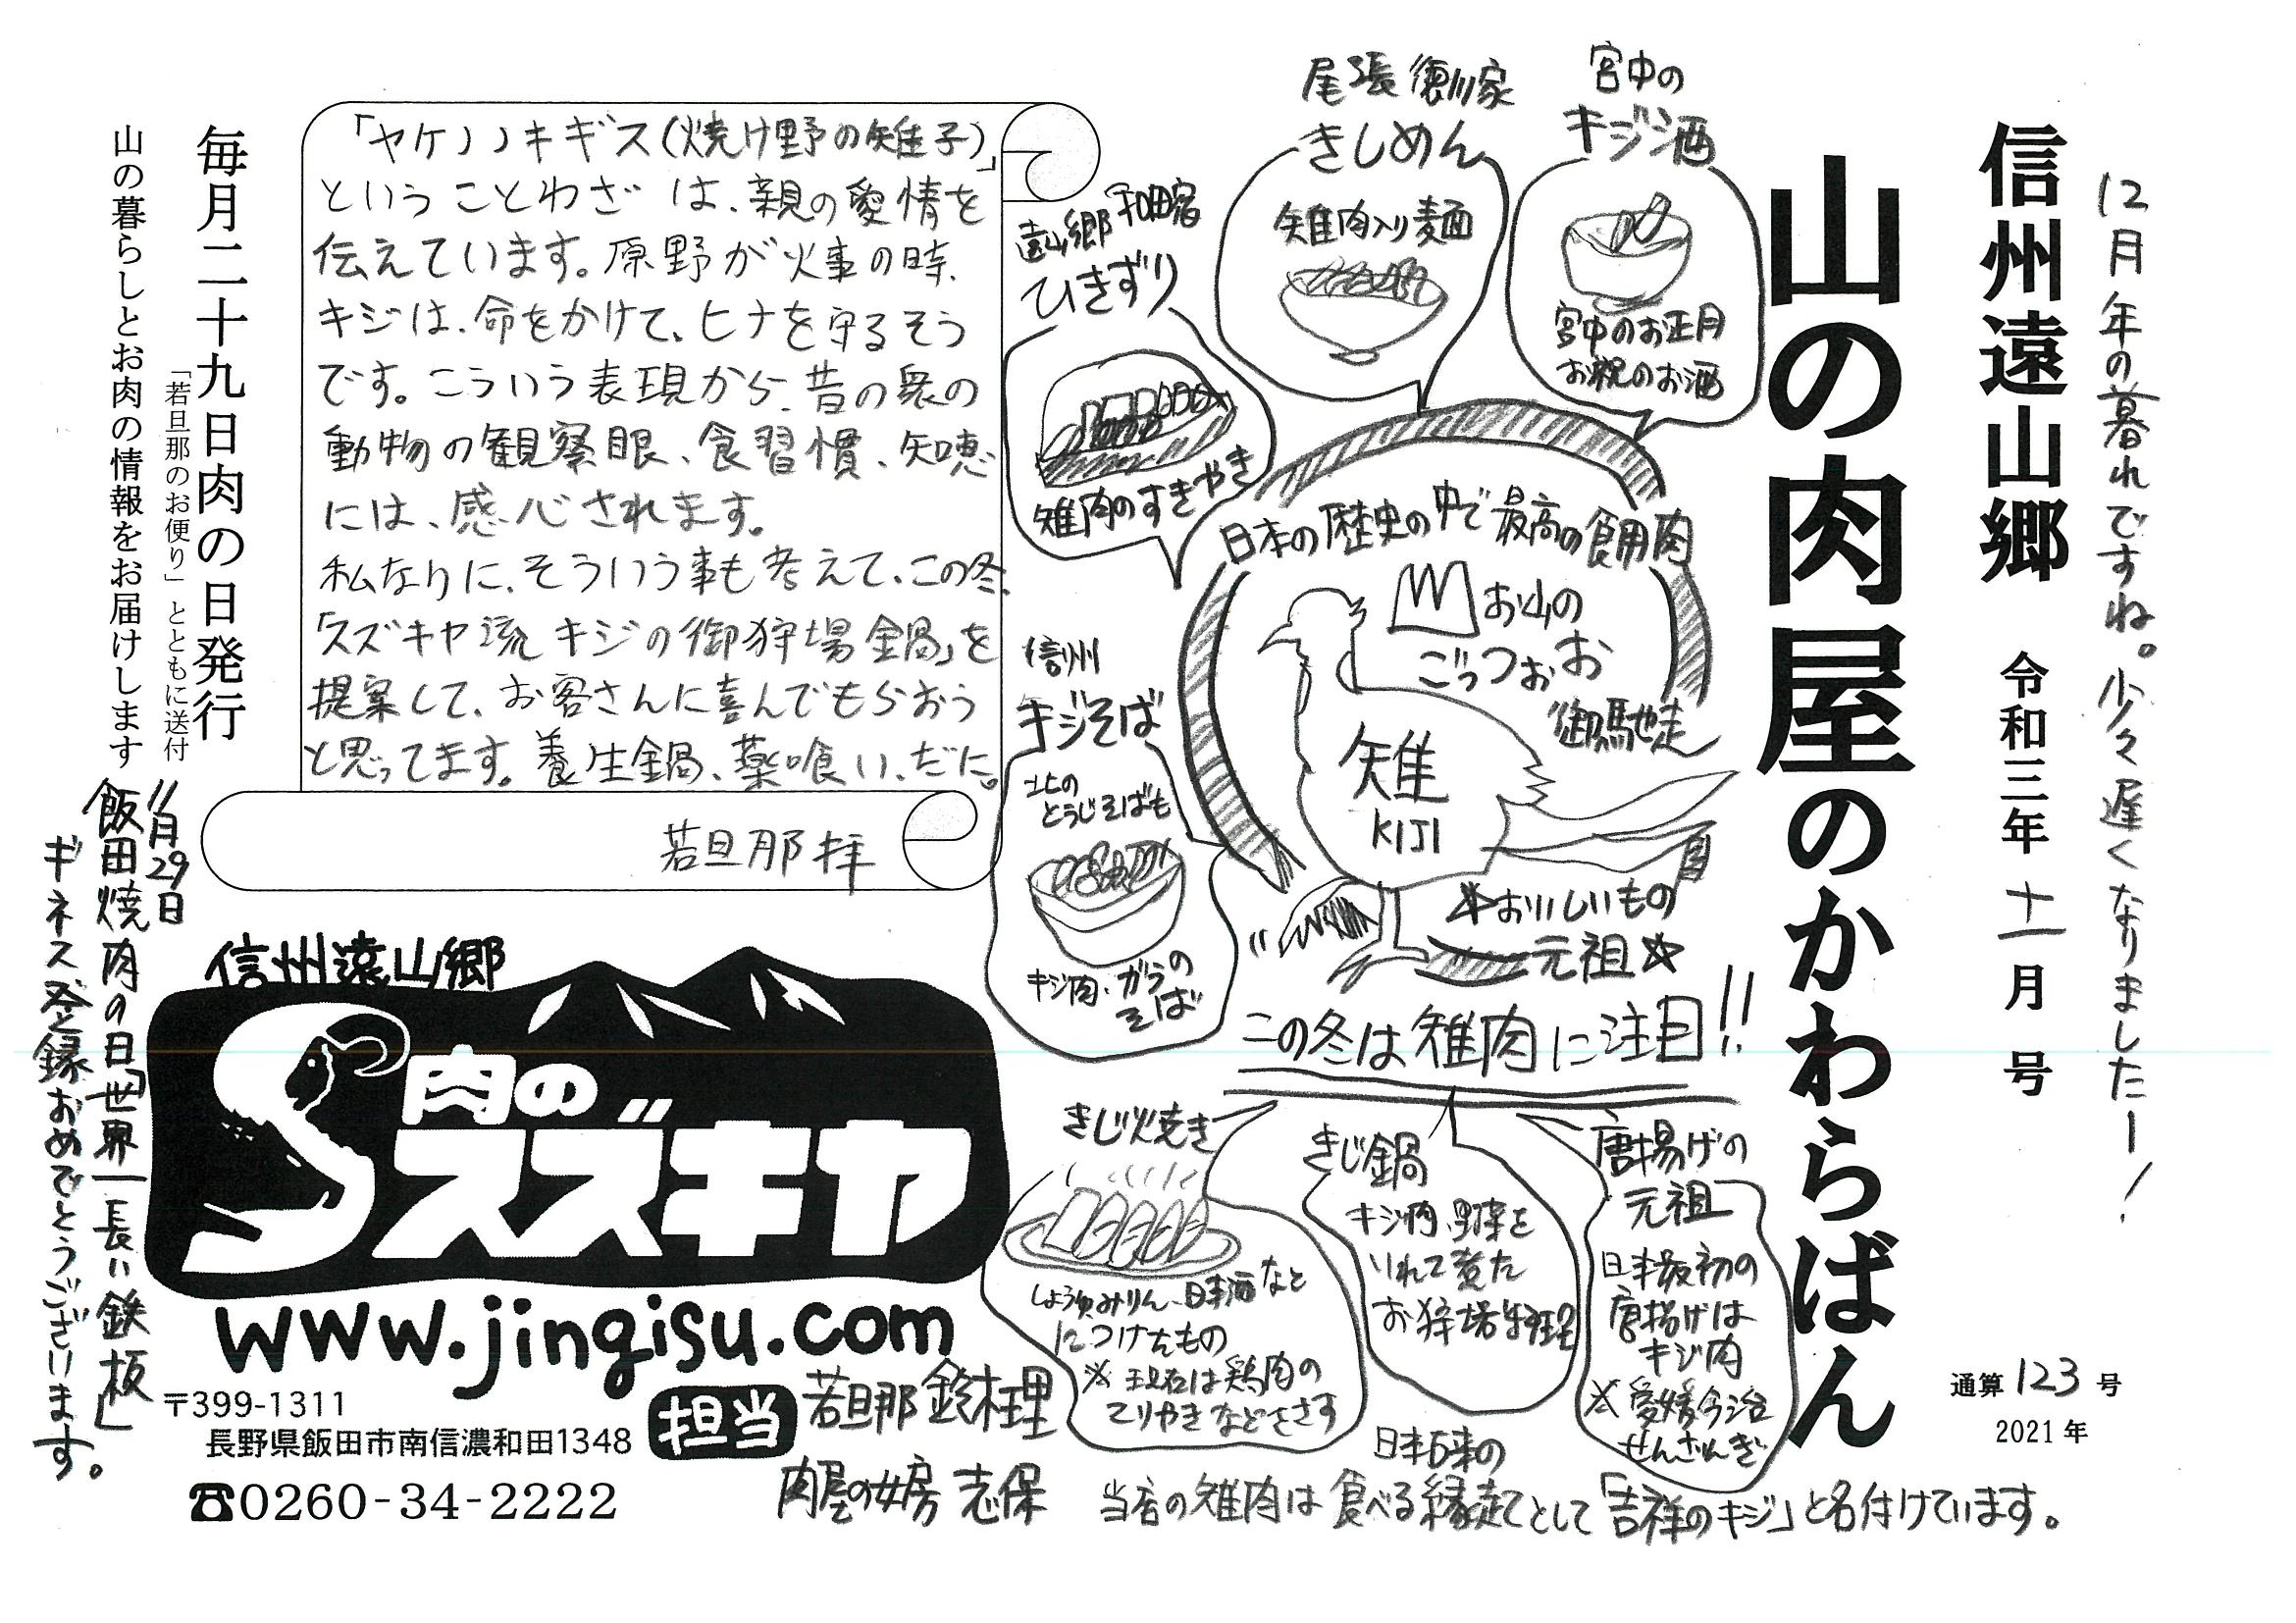 12月年の暮れですね。少々遅くなりましたー！
信州遠山郷 令和三年 十一月号
通算123号
2021年
山の肉屋のかわらばん
宮中の
キジ酒
宮中のお正月
お祝のお酒
尾張徳川家
きしめん
雉肉入り麺
遠山郷和田宿
ひきずり
雉肉のすきやき
信州
キジそば
北の
とうじそばも
キジ肉・ガラの
そば
日本の歴史の中で最高の食用肉
お山の
ごっつぉお
御馳走
雉
KIJI
☆おいしいもの
元祖☆
この冬は雉肉に注目!!
きじ焼き
しょう油みりん、日本酒など
につけたもの
※現在は鶏肉の
てりやきなどをさす
きじ鍋
キジ肉、野菜を
いれて煮た
お狩場料理
唐揚げの
元祖
日本最初の
唐揚げは
キジ肉
※愛媛今治
せんざんぎ
日本古来の
当店の雉肉は食べる縁起てとして「吉祥のキジ」と名付けています。
「ヤケノノキギス(焼け野の雉子)」
ということわざは、親の愛情を
伝えています。原野が火事の時、
キジは、命をかけて、ヒナを守るそう
です。こういう表現から、昔の衆の
動物の観察眼、食習慣、知恵
には、感心されます。
私なりに、そういう事も考えて、この冬、
「スズキヤ流キジの御狩場鍋」を
提案して、お客さんに喜んでもらおう
と思ってます。養生鍋、薬喰い、だに。
若旦那 拝
毎月二十九日肉の日発行
「若旦那のお便り」とともに送付
山の暮らしとお肉の情報をお届けします
11月29日
飯田焼肉の日「世界一長い鉄板」
ギネス登録おめでとうございます。
信州遠山郷
肉の
スズキヤ
www.jingisu.com
〒399-1311
長野県飯田市南信濃和田1348
☎0260-34-2222
担当
若旦那 鈴木理
肉屋の女房 志保